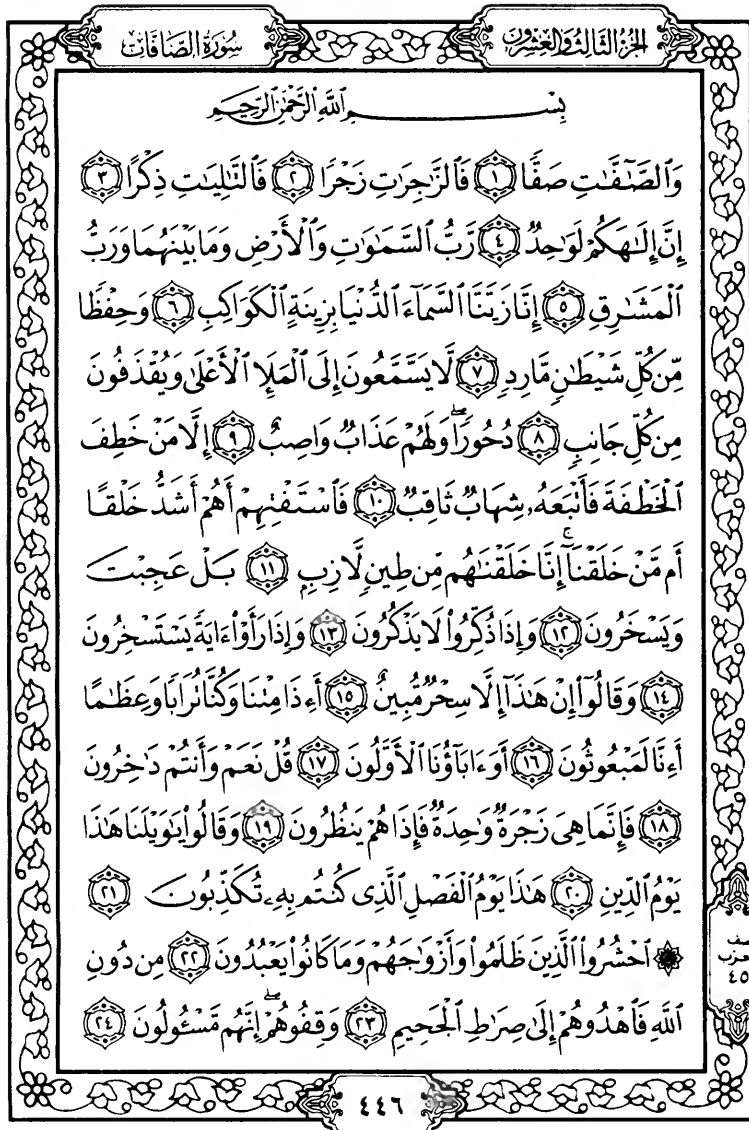 سُورَةُ الصَّافَّاتِ
الجُزْءُ الثَّالِثُ وَالْعِشْرُونَ
بِسْمِ ٱللَّهِ ٱلرَّحْمَٰنِ ٱلرَّحِيمِ
وَٱلصَّٰٓفَّٰتِ صَفًّا ١ فَٱلزَّٰجِرَٰتِ زَجْرًا ٢ فَٱلتَّٰلِيَٰتِ ذِكْرًا ٣
إِنَّ إِلَٰهَكُمْ لَوَٰحِدٌ ٤ رَّبُّ ٱلسَّمَٰوَٰتِ وَٱلْأَرْضِ وَمَا بَيْنَهُمَا وَرَبُّ
ٱلْمَشَٰرِقِ ٥ إِنَّا زَيَّنَّا ٱلسَّمَآءَ ٱلدُّنْيَا بِزِينَةٍ ٱلْكَوَاكِبِ ٦ وَحِفْظًا
مِّن كُلِّ شَيْطَٰنٍ مَّارِدٍ ٧ لَّا يَسَّمَّعُونَ إِلَى ٱلْمَلَإِ ٱلْأَعْلَىٰ وَيُقْذَفُونَ
مِن كُلِّ جَانِبٍ ٨ دُحُورًا ۖ وَلَهُمْ عَذَابٌ وَاصِبٌ ٩ إِلَّا مَنْ خَطِفَ
ٱلْخَطْفَةَ فَأَتْبَعَهُۥ شِهَابٌ ثَاقِبٌ ١٠ فَٱسْتَفْتِهِمْ أَهُمْ أَشَدُّ خَلْقًا
أَم مَّنْ خَلَقْنَآ ۚ إِنَّا خَلَقْنَٰهُم مِّن طِينٍ لَّازِبٍ ١١ بَلْ عَجِبْتَ
وَيَسْخَرُونَ ١٢ وَإِذَا ذُكِّرُوا۟ لَا يَذْكُرُونَ ١٣ وَإِذَا رَأَوْا۟ ءَايَةً يَسْتَسْخِرُونَ
١٤ وَقَالُوٓا۟ إِنْ هَٰذَآ إِلَّا سِحْرٌ مُّبِينٌ ١٥ أَءِذَا مِتْنَا وَكُنَّا تُرَابًا وَعِظَٰمًا
أَءِنَّا لَمَبْعُوثُونَ ١٦ أَوَءَابَآؤُنَا ٱلْأَوَّلُونَ ١٧ قُلْ نَعَمْ وَأَنتُمْ دَٰخِرُونَ
١٨ فَإِنَّمَا هِىَ زَجْرَةٌ وَٰحِدَةٌ فَإِذَا هُمْ يَنظُرُونَ ١٩ وَقَالُوا۟ يَٰوَيْلَنَا هَٰذَا
يَوْمُ ٱلدِّينِ ٢٠ هَٰذَا يَوْمُ ٱلْفَصْلِ ٱلَّذِى كُنتُم بِهِۦ تُكَذِّبُونَ ٢١
۞ ٱحْشُرُوا۟ ٱلَّذِينَ ظَلَمُوا۟ وَأَزْوَٰجَهُمْ وَمَا كَانُوا۟ يَعْبُدُونَ ٢٢ مِن دُونِ
ٱللَّهِ فَٱهْدُوهُمْ إِلَىٰ صِرَٰطِ ٱلْجَحِيمِ ٢٣ وَقِفُوهُمْ ۖ إِنَّهُم مَّسْـُٔولُونَ ٢٤
٤٥
٤٤٦